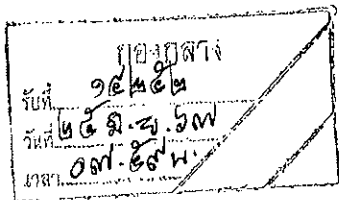 กองกลาง
รับที่ ๑๕๒๕๒
วันที่ ๒๕ มิ.ย. ๖๗
เวลา ๐๗.๕๙ น.